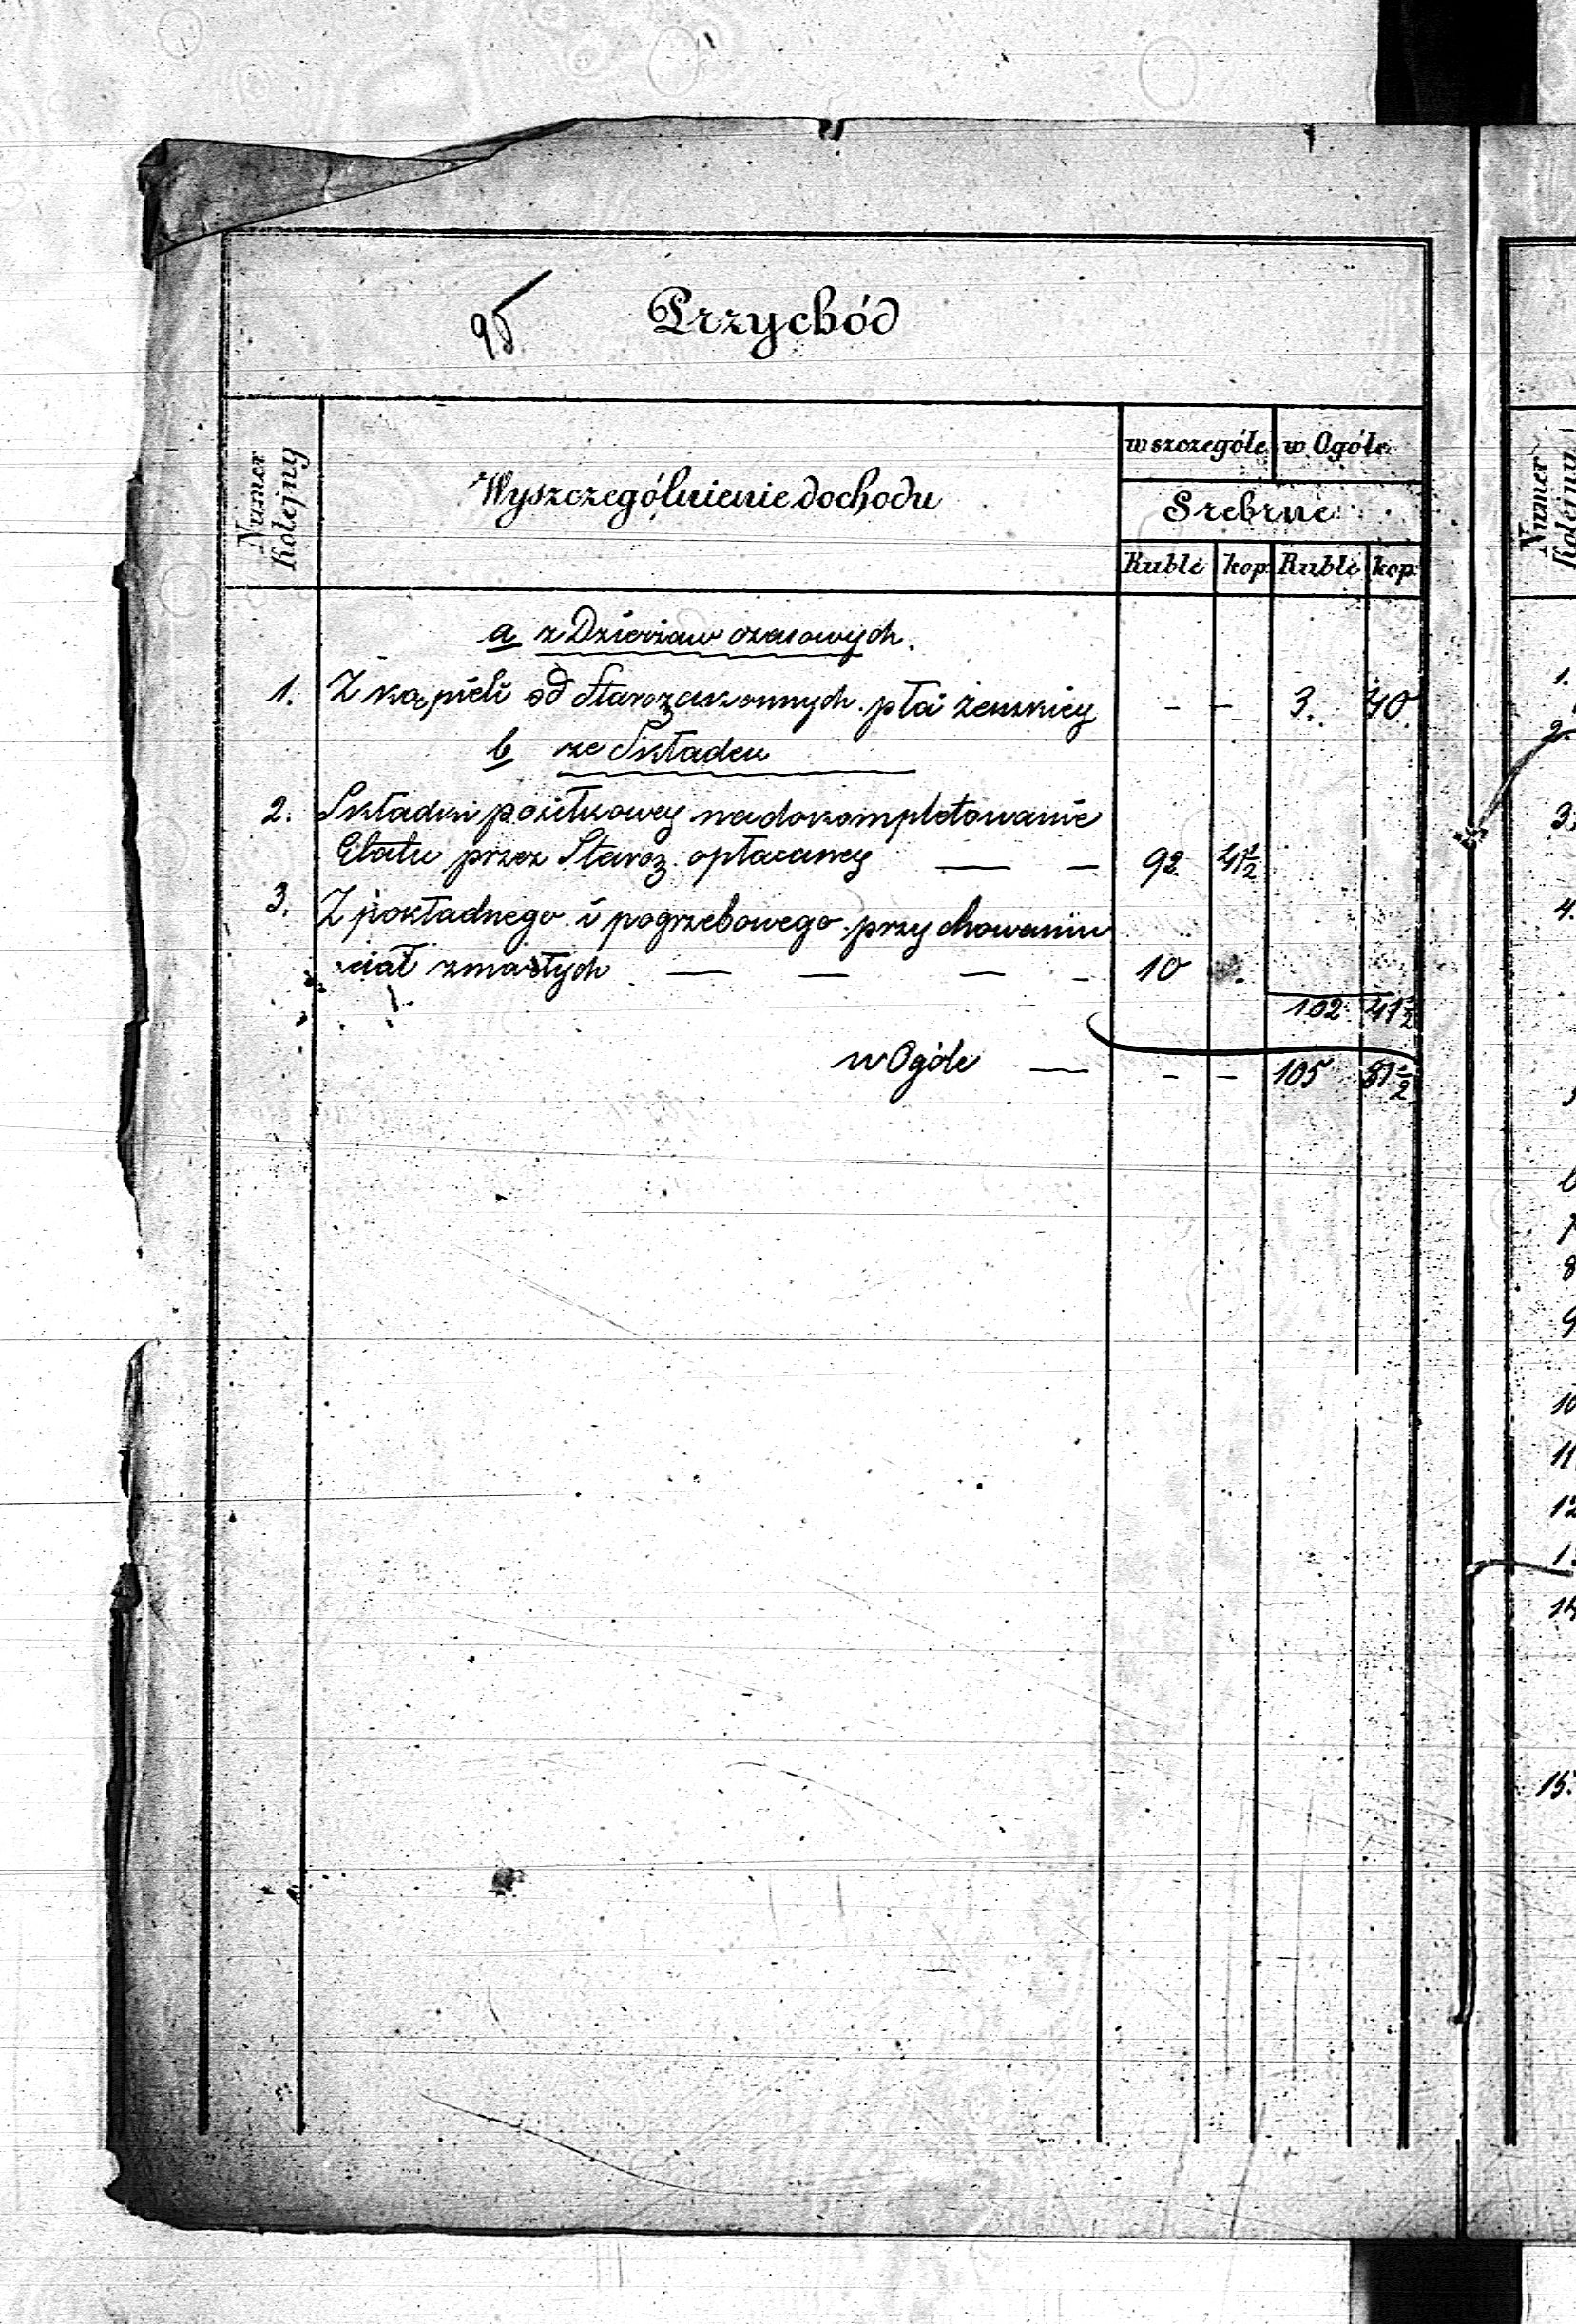 95
Przychód
Numer Kolejny
Wyszczególnienie dochodu
w szczególe w Ogóle
Srebrne
Rubli kop Rubli kop.
a z Dzierżaw czasowych.
1. Z kąpieli od Starozakonnych płci żeńskiey - - 3. 40.
b ze Składek
2. Składki posiłkowey na dokompletowanie
Etatu przez Staroz. opłacaney — — 92. 41½
3. Z pokładnego i pogrzebowego przy chowaniu
ciał zmarłych — — — - 10 .
102 41½
w Ogóle — - - 105 81½
Numer Kolejny
1.
2.
3.
4.
6
7
8
9
10
11
12
14
15.